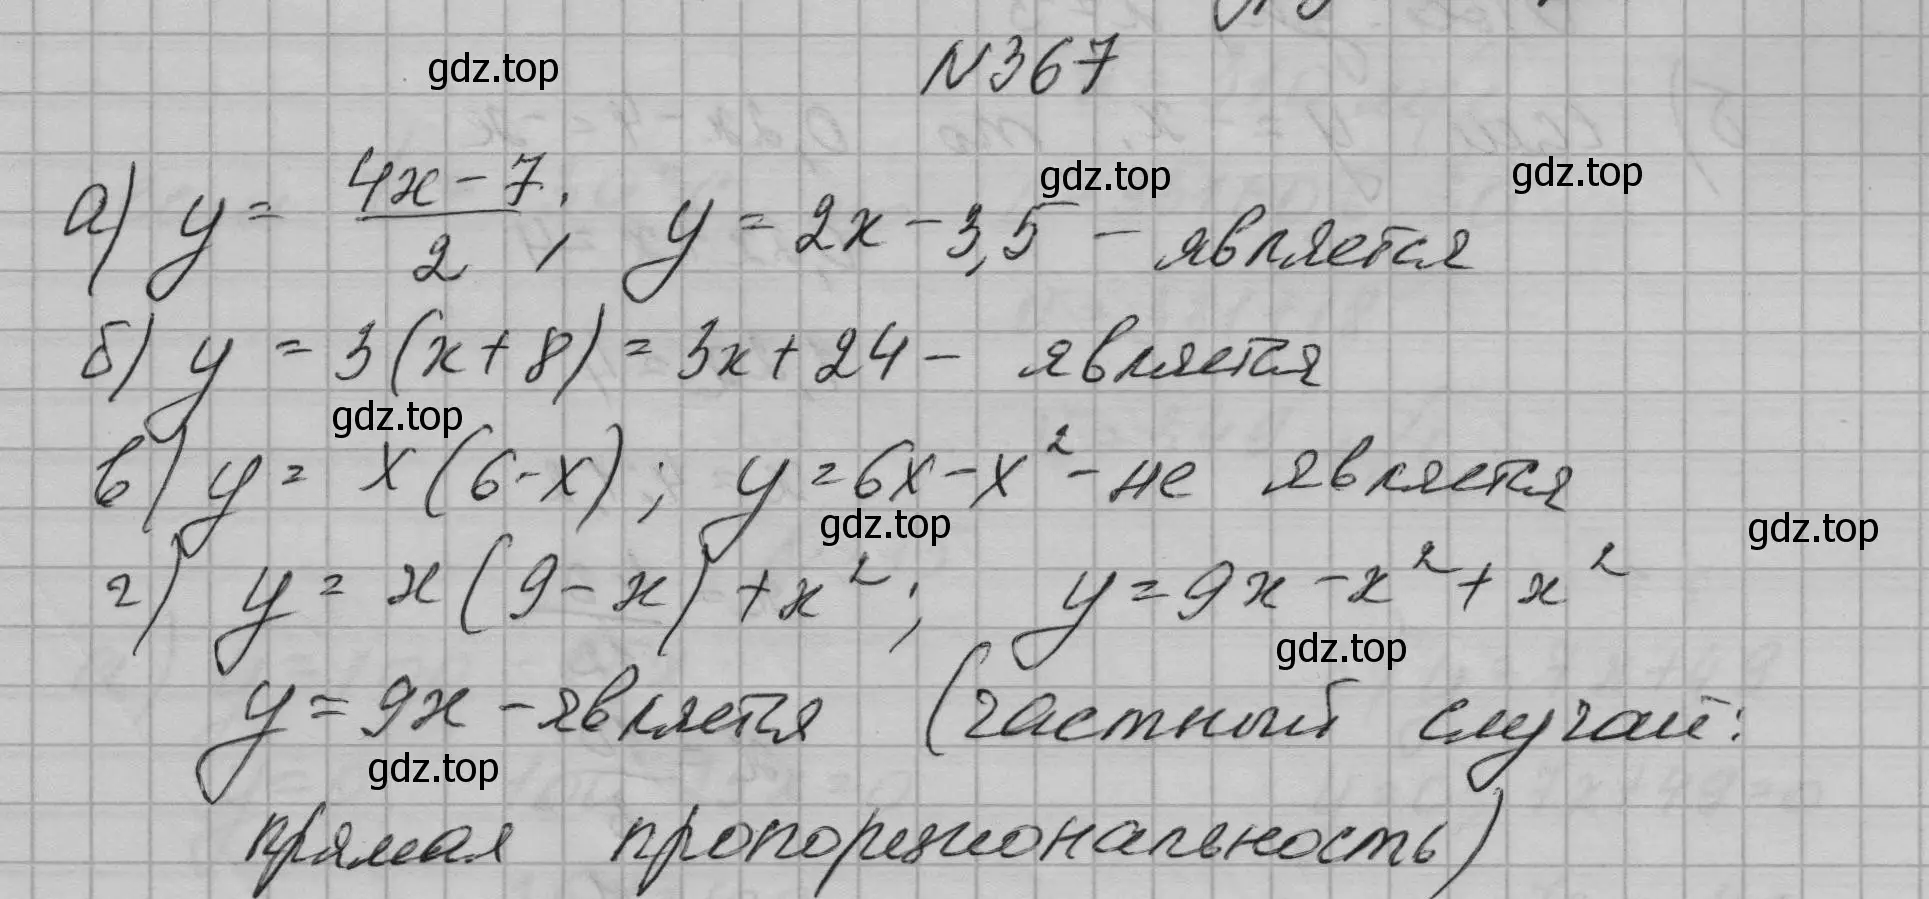 N367
gdz.top
а) y = (4x - 7)/2; y = 2x - 3,5 - является
gdz.top gdz.top
б) y = 3(x + 8) = 3x + 24 - является
gdz.top
в) y = x(6 - x); y = 6x - x² - не является
gdz.top gdz.top
г) y = x(9 - x) + x²; y = 9x - x² + x²
gdz.top
y = 9x - является (частный случай:
gdz.top
прямая пропорциональность)